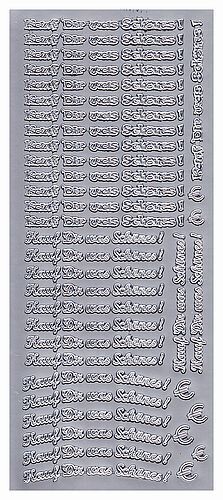 Kauf Dir was Schönes!
Kauf Dir was Schönes!
Kauf Dir was Schönes!
Kauf Dir was Schönes!
Kauf Dir was Schönes!
Kauf Dir was Schönes!
Kauf Dir was Schönes!
Kauf Dir was Schönes!
Kauf Dir was Schönes!
Kauf Dir was Schönes!
Kauf Dir was Schönes!
Kauf Dir was Schönes!
Kauf Dir was Schönes!
Kauf Dir was Schönes!
Kauf Dir was Schönes!
€
Kauf Dir was Schönes!
Kauf Dir was Schönes!
Kauf Dir was Schönes!
Kauf Dir was Schönes!
Kauf Dir was Schönes!
Kauf Dir was Schönes!
Kauf Dir was Schönes!
Kauf Dir was Schönes!
Kauf Dir was Schönes!
Kauf Dir was Schönes!
Kauf Dir was Schönes! €
Kauf Dir was Schönes! €
Kauf Dir was Schönes! €
Kauf Dir was Schönes! €
Kauf Dir was Schönes! €
Kauf Dir was Schönes!